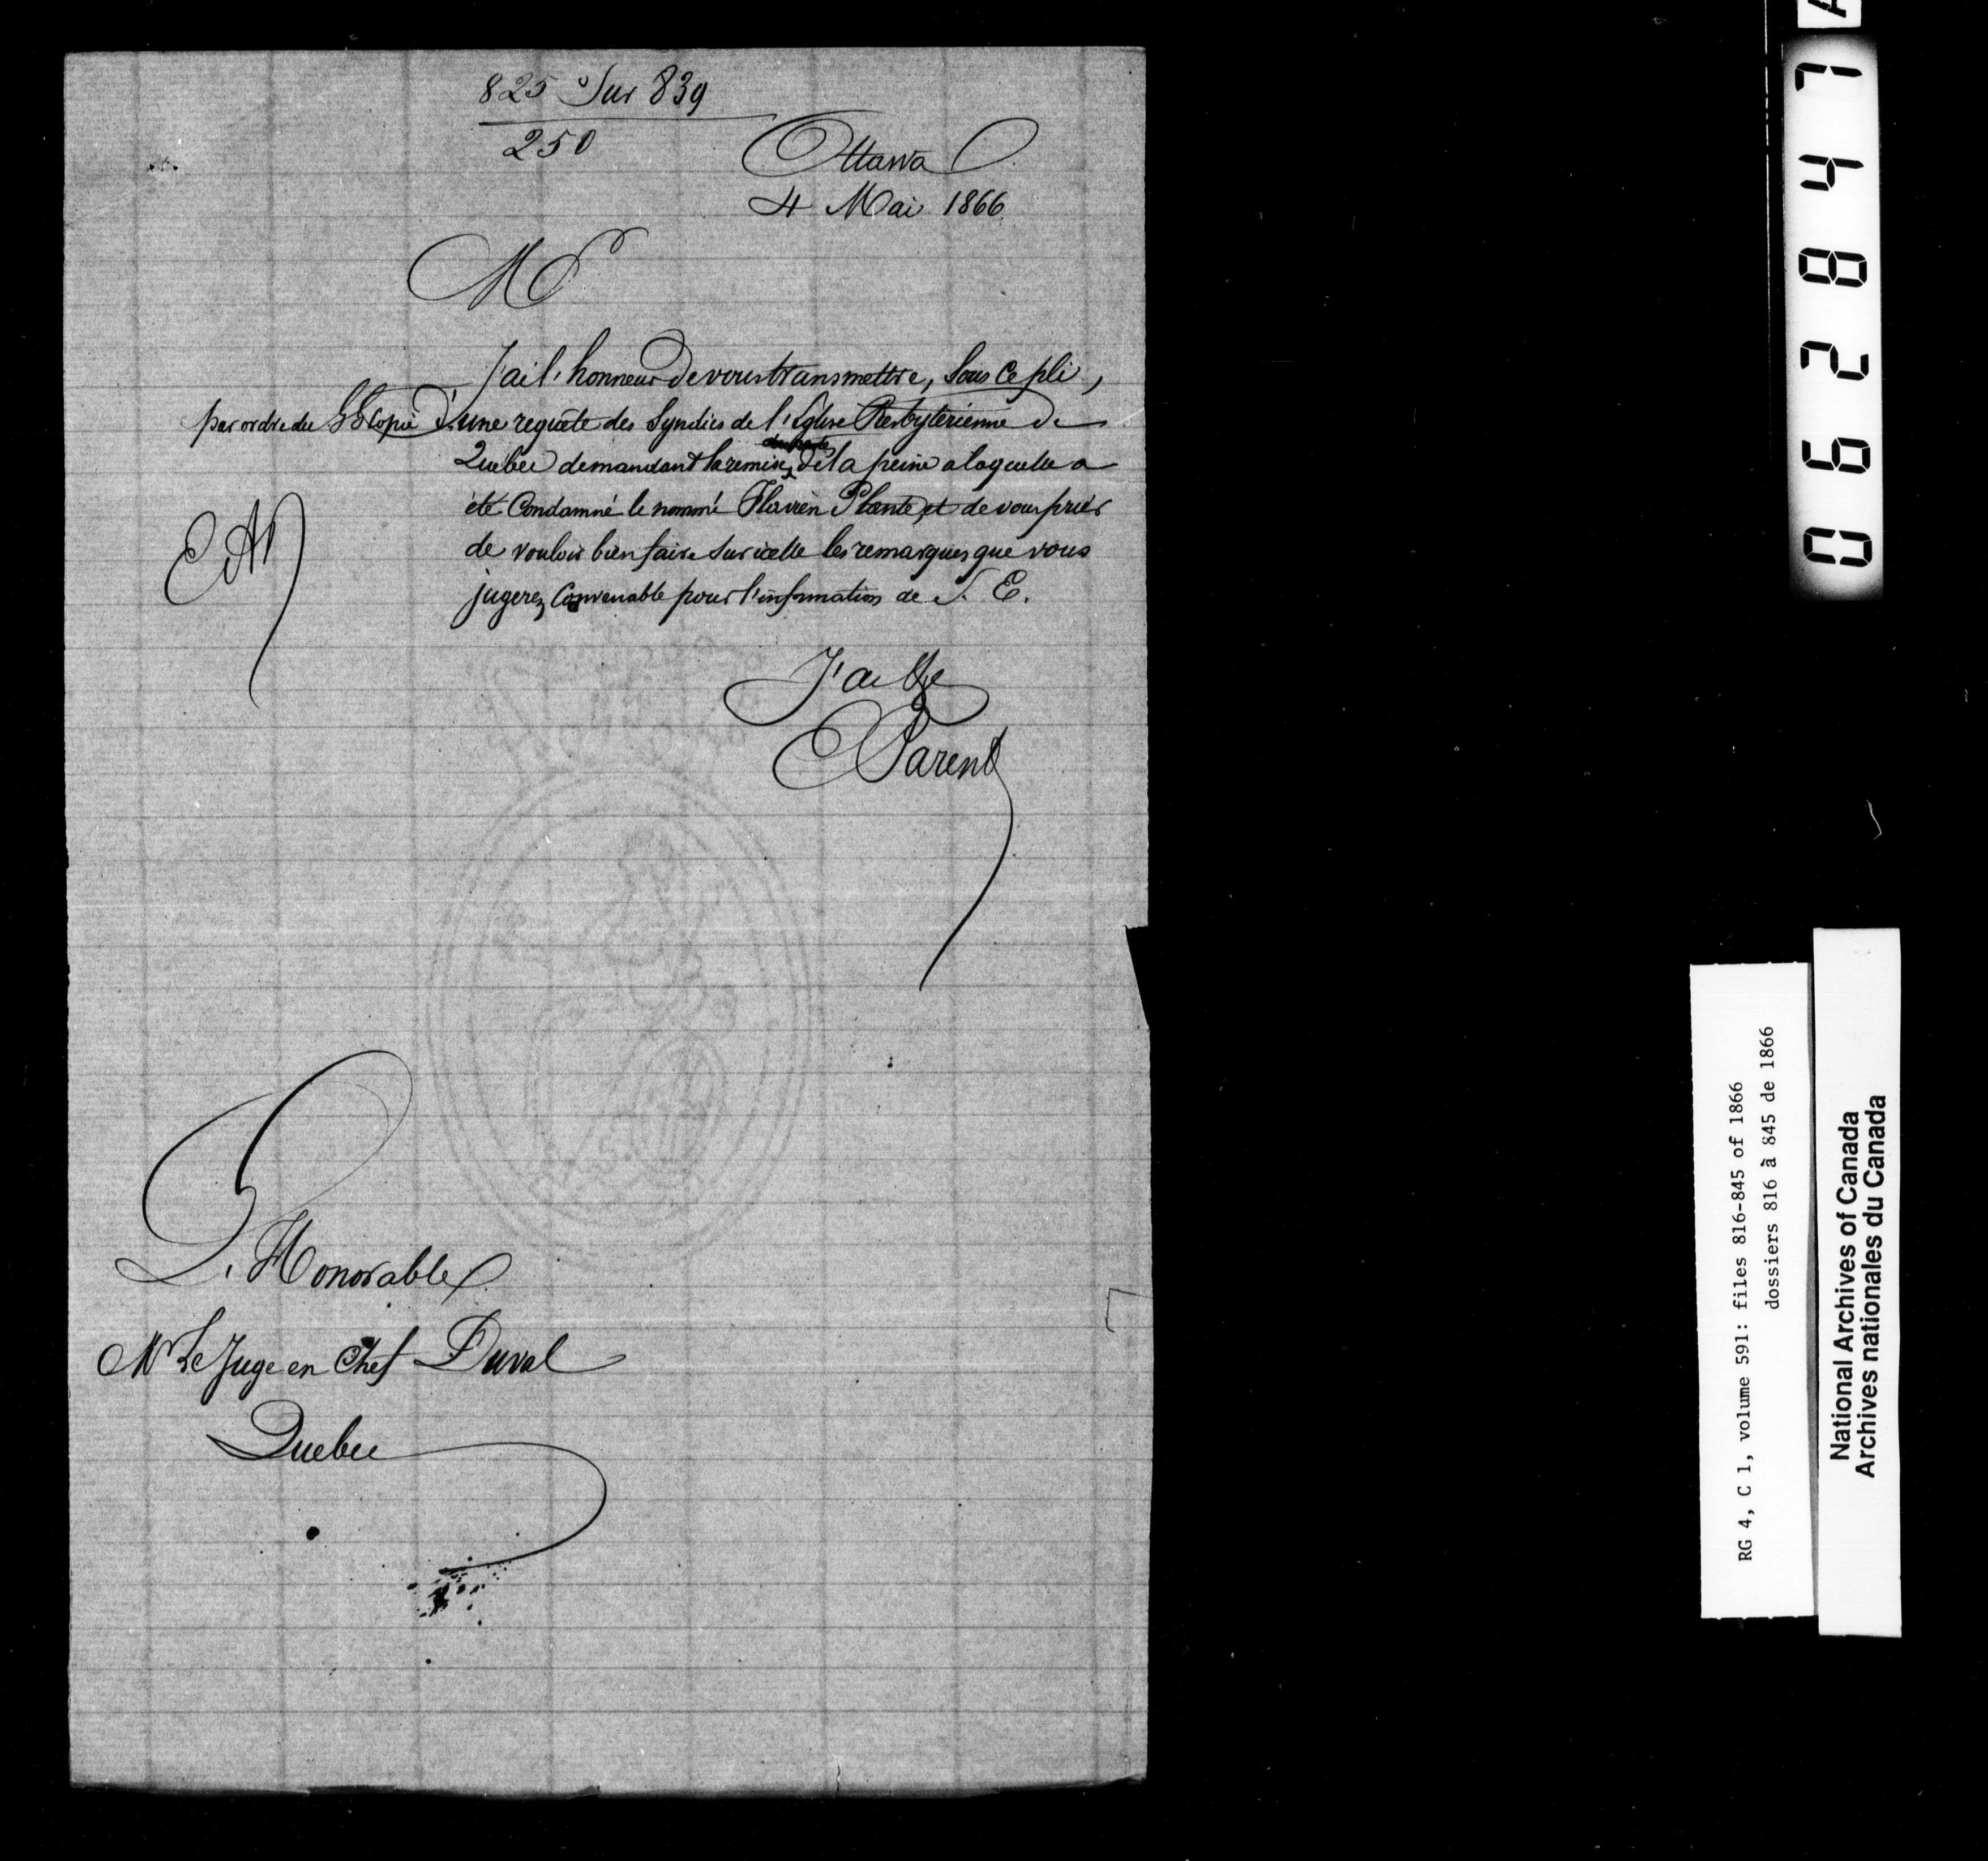 825 Sur 839
250
Ottawa
4 Mai 1866
Mr
J'ai l'honneur de vous transmettre, Sous ce pli,
par ordre du G G copie d'une requête des Syndics de l'Eglise Presbyterienne de
Quebec demandant la remise de la peine a laquelle a
été Condamné le nommé Flavien Plante, et de vous prier
de vouloir bien faire sur icelle les remarques que vous
jugerez Convenable pour l'information de S. E.
J'ai &c
E Parent
L'Honorable
Mr Le Juge en Chef Duval
Quebec
062847
RG 4, C 1, volume 591: files 816-845 of 1866
dossiers 816 à 845 de 1866
National Archives of Canada
Archives nationales du Canada